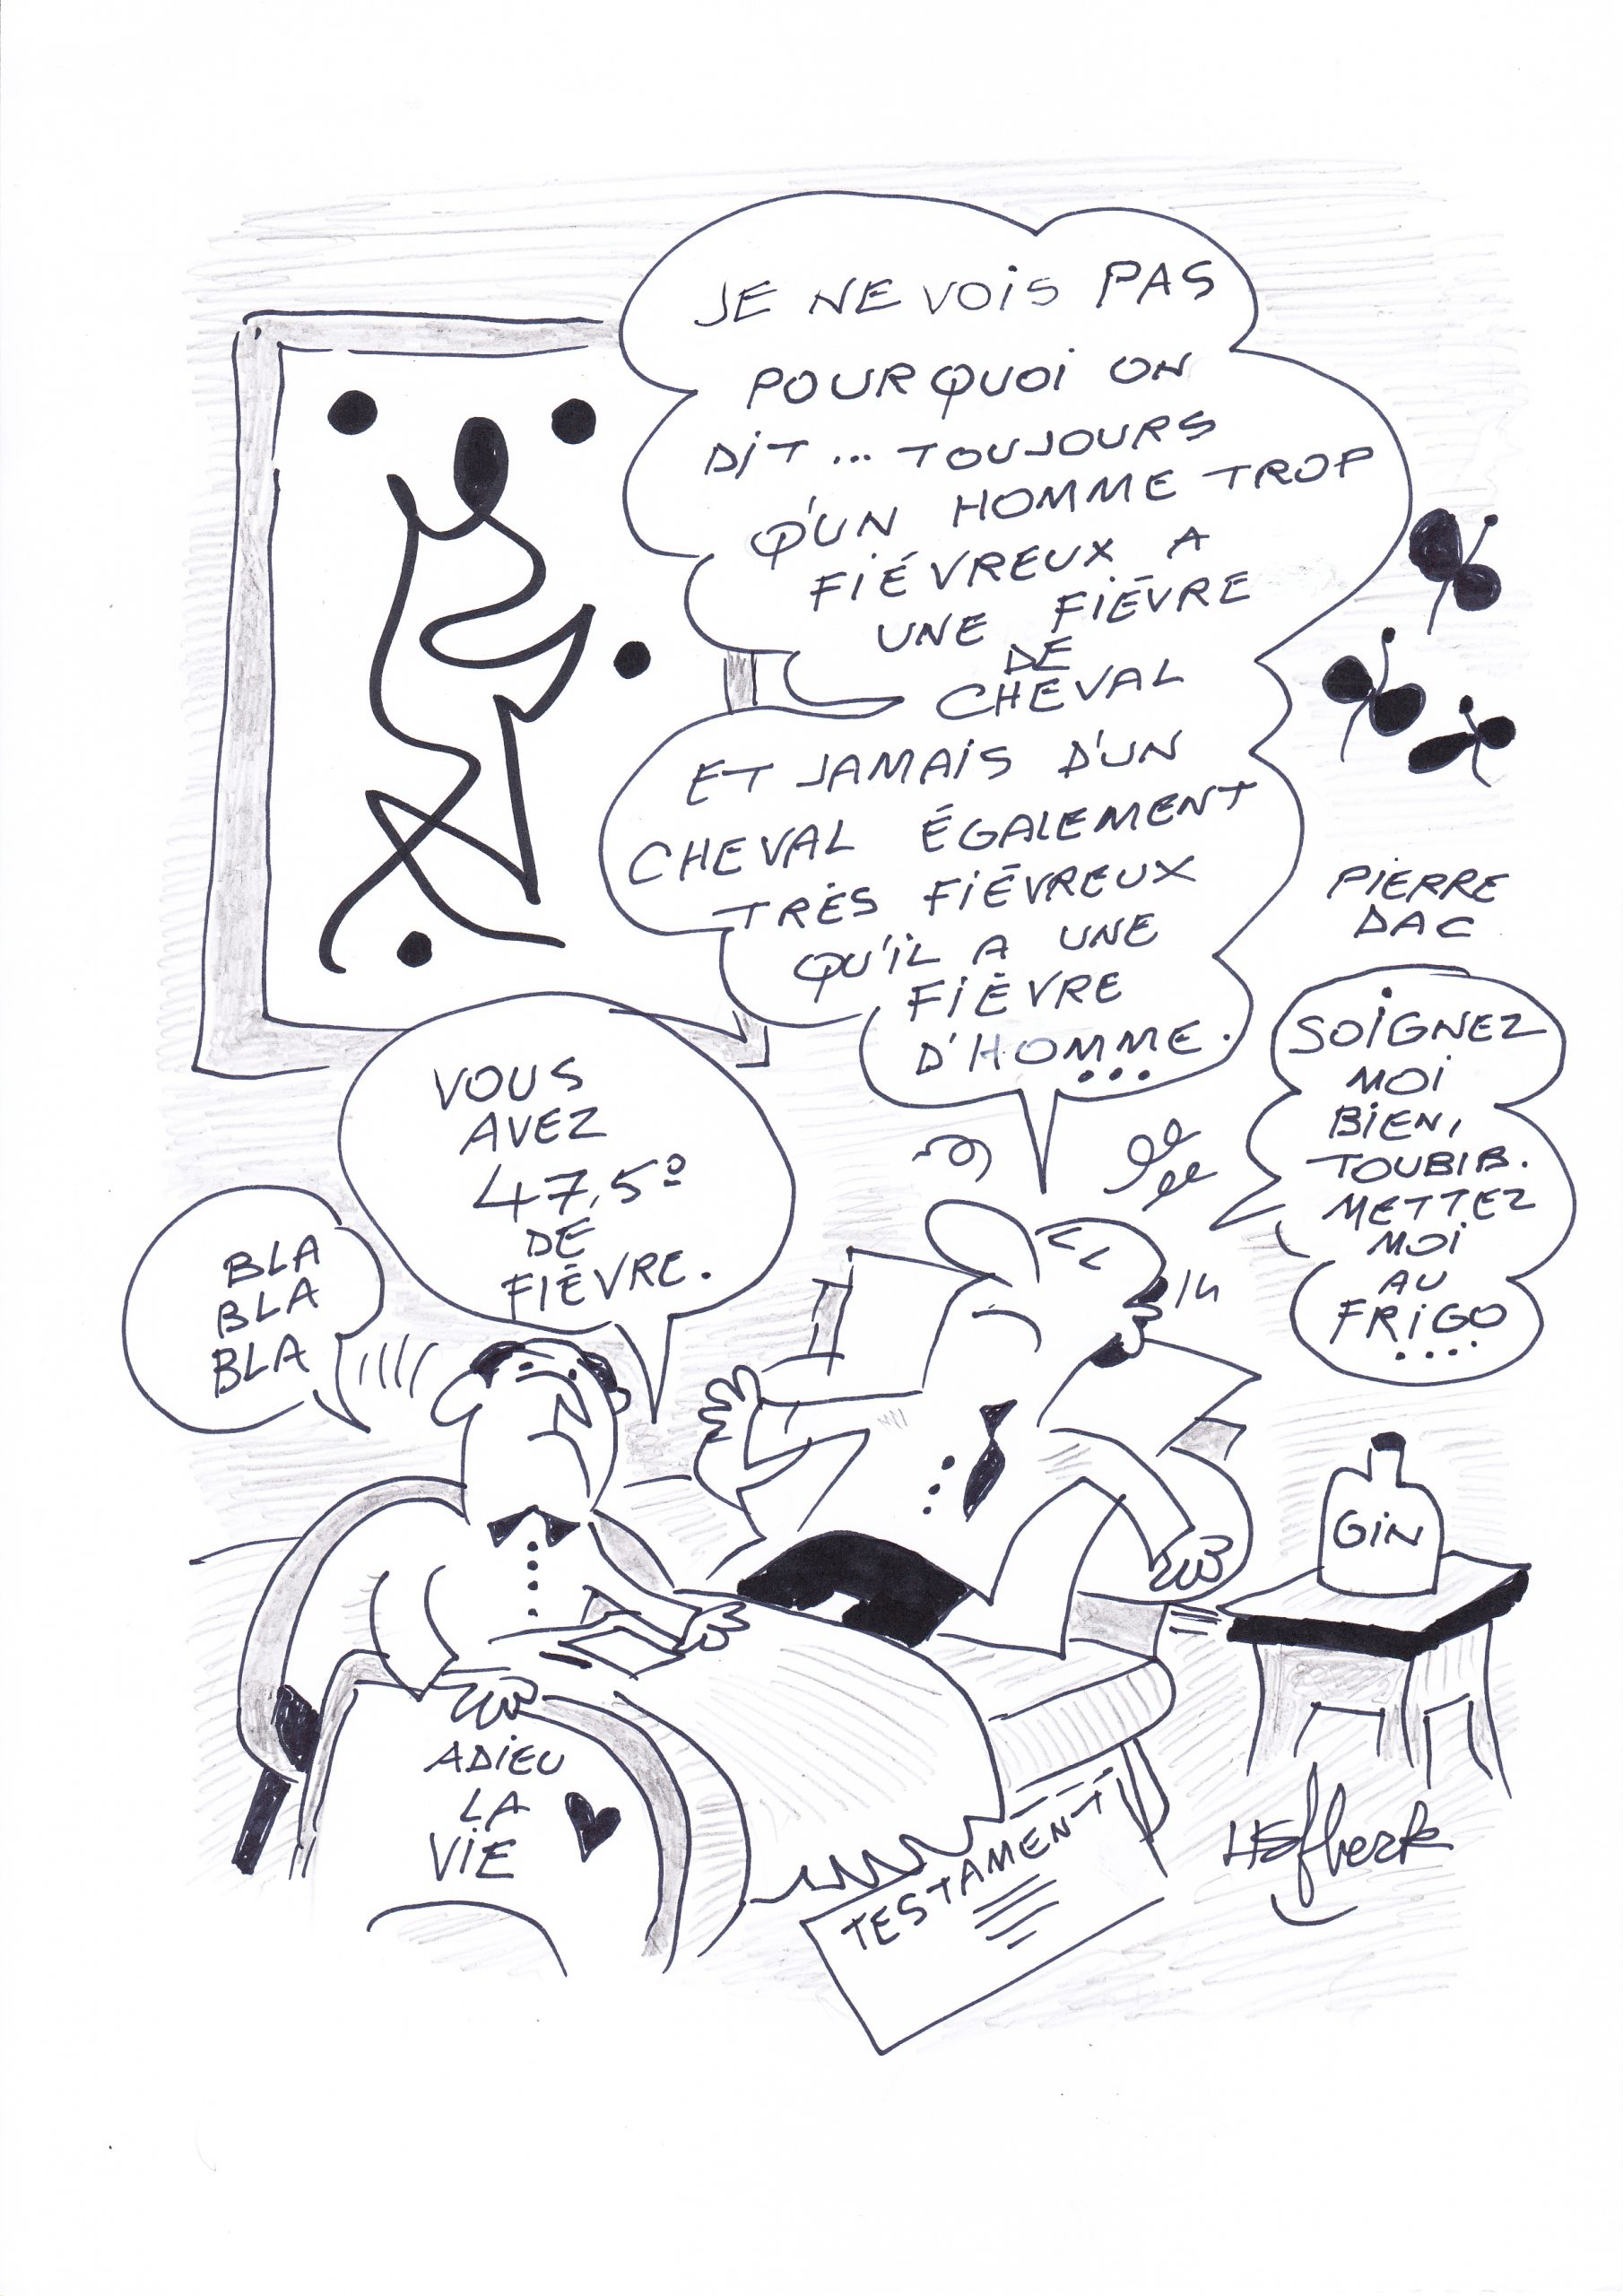 JE NE VOIS PAS
POURQUOI ON
DIT... TOUJOURS
QU'UN HOMME TROP
FIÉVREUX A
UNE FIÈVRE
DE
CHEVAL
ET JAMAIS D'UN
CHEVAL ÉGALEMENT
TRÈS FIÉVREUX
QU'IL A UNE
FIÈVRE
D'HOMME...
PIERRE
DAC
SOIGNEZ
MOI
BIEN,
TOUBIB.
METTEZ
MOI
AU
FRIGO
....
VOUS
AVEZ
47,5º
DE
FIÈVRE.
BLA
BLA
BLA
GIN
ADIEU
LA
VIE
TESTAMENT